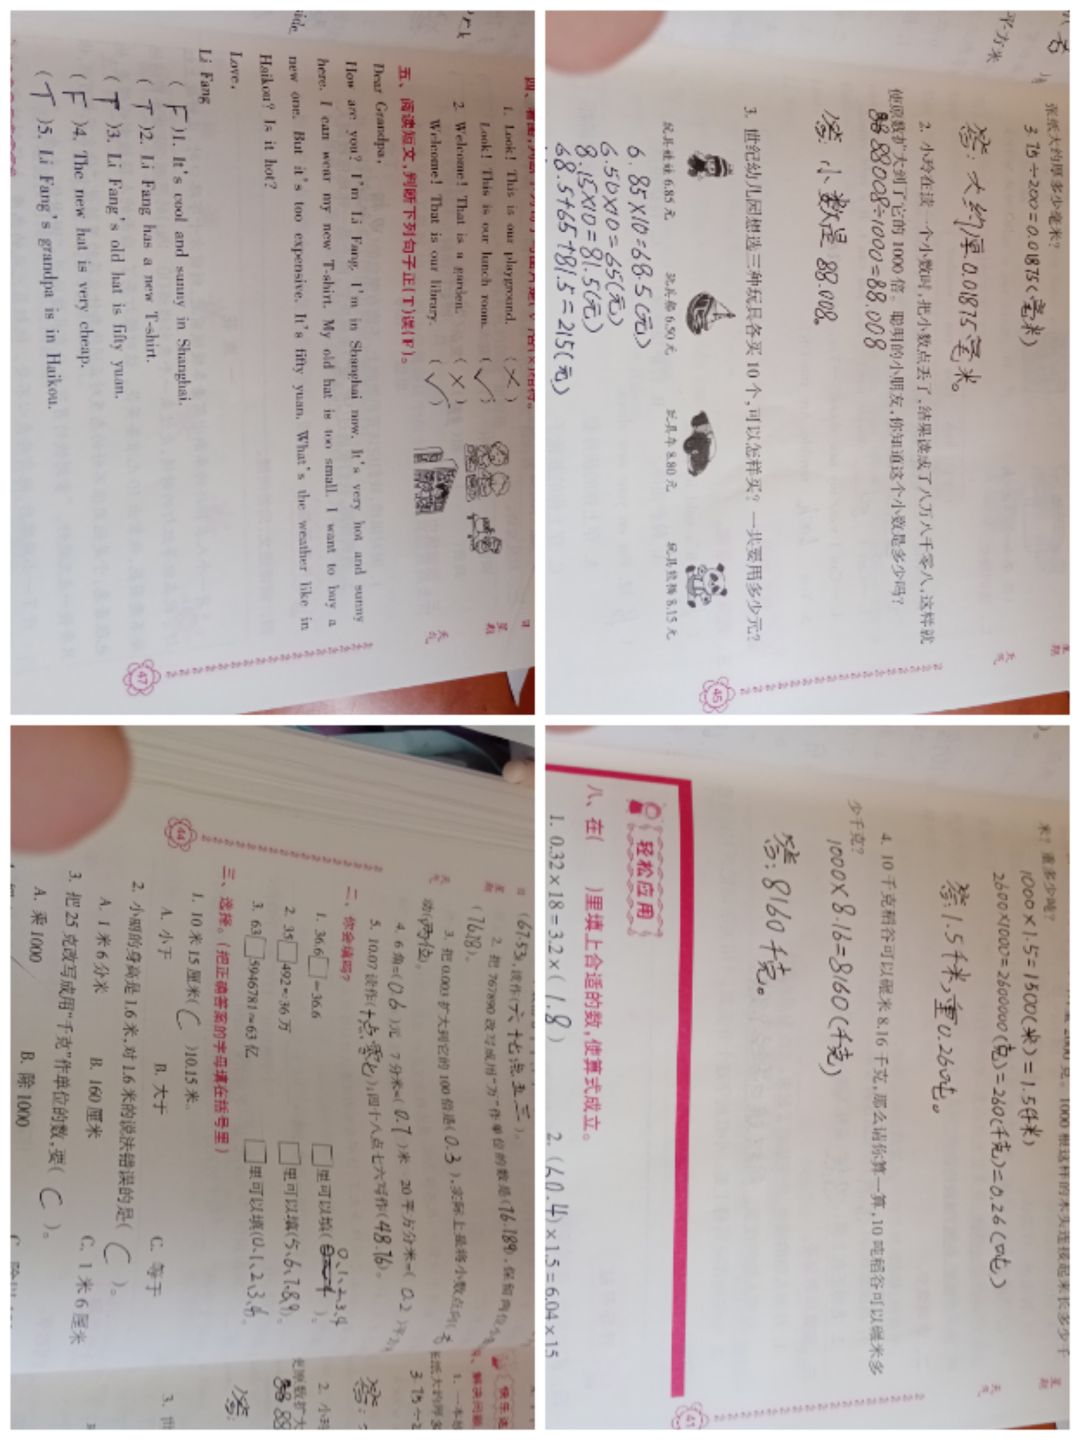 四、看图,判断下列句子与图片是(√)否(×)相符。
1. Look! This is our playground. (×)
Look! This is our lunch room. (√)
2. Welcome! That is a garden. (×)
Welcome! That is our library. (√)
五、阅读短文,判断下列句子正(T)误(F)。
Dear Grandpa,
How are you? I'm Li Fang. I'm in Shanghai now. It's very hot and sunny
here. I can wear my new T-shirt. My old hat is too small. I want to buy a
new one. But it's too expensive. It's fifty yuan. What's the weather like in
Haikou? Is it hot?
Love,
Li Fang
(F)1. It's cool and sunny in Shanghai.
(T)2. Li Fang has a new T-shirt.
(T)3. Li Fang's old hat is fifty yuan.
(F)4. The new hat is very cheap.
(T)5. Li Fang's grandpa is in Haikou.
47
张纸大约厚多少毫米?
3.75÷200=0.01875(毫米)
答:大约厚0.01875毫米。
2. 小玲在读一个小数时,把小数点丢了,结果读成了八万八千零八,这样就
使原数扩大到了它的1000倍。聪明的小朋友,你知道这个小数是多少吗?
88008÷1000=88.008
答:小数是88.008。
3. 世纪幼儿园想选三种玩具各买10个,可以怎样买?一共要用多少元?
玩具娃娃6.85元 玩具船6.50元 玩具车8.80元 玩具熊猫8.15元
6.85×10=68.5(元)
6.50×10=65(元)
8.15×10=81.5(元)
68.5+65+81.5=215(元)
45
(67.53),读作(六十七点五三)。
2. 把767890改写成用“万”作单位的数是(76.789),保留两位小
(76.78)。
3. 把0.003扩大到它的100倍是(0.3),实际上是将小数点向(右
动(两位)。
4. 6角=(0.6)元 7分米=(0.7)米 20平方分米=(0.2)平
5. 10.07读作(十点零七);四十八点七六写作(48.76)。
二、你会填吗?
1. 36.6□≈36.6 □里可以填(0、1、2、3、4)。
2. 35□492≈36万 □里可以填(5、6、7、8、9)。
3. 63□5946781≈63亿 □里可以填(0、1、2、3、4)。
三、选择。(把正确答案的字母填在括号里)
1. 10米15厘米(C)10.15米。
A. 小于 B. 大于 C. 等于
2. 小丽的身高是1.6米,对1.6米的说法错误的是(C)。
A. 1米6分米 B. 160厘米 C. 1米6厘米
3. 把25克改写成用“千克”作单位的数,要(C)。
A. 乘1000 B. 除1000
44
米?重多少吨?
1000×1.5=1500(米)=1.5(千米)
2600×1000=2600000(克)=260(千克)=0.26(吨)
答:1.5千米,重0.26吨。
4. 10千克稻谷可以碾米8.16千克,那么请你算一算,10吨稻谷可以碾米多
少千克?
1000×8.16=8160(千克)
答:8160千克。
轻松应用
八、在( )里填上合适的数,使算式成立。
1. 0.32×18=3.2×(1.8) 2. (60.4)×1.5=6.04×15
41